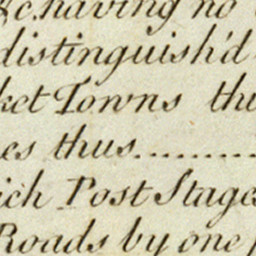 &c. having no
distinguish'd
ket Towns thu
es thus..........
ich Post Stage
Roads by one